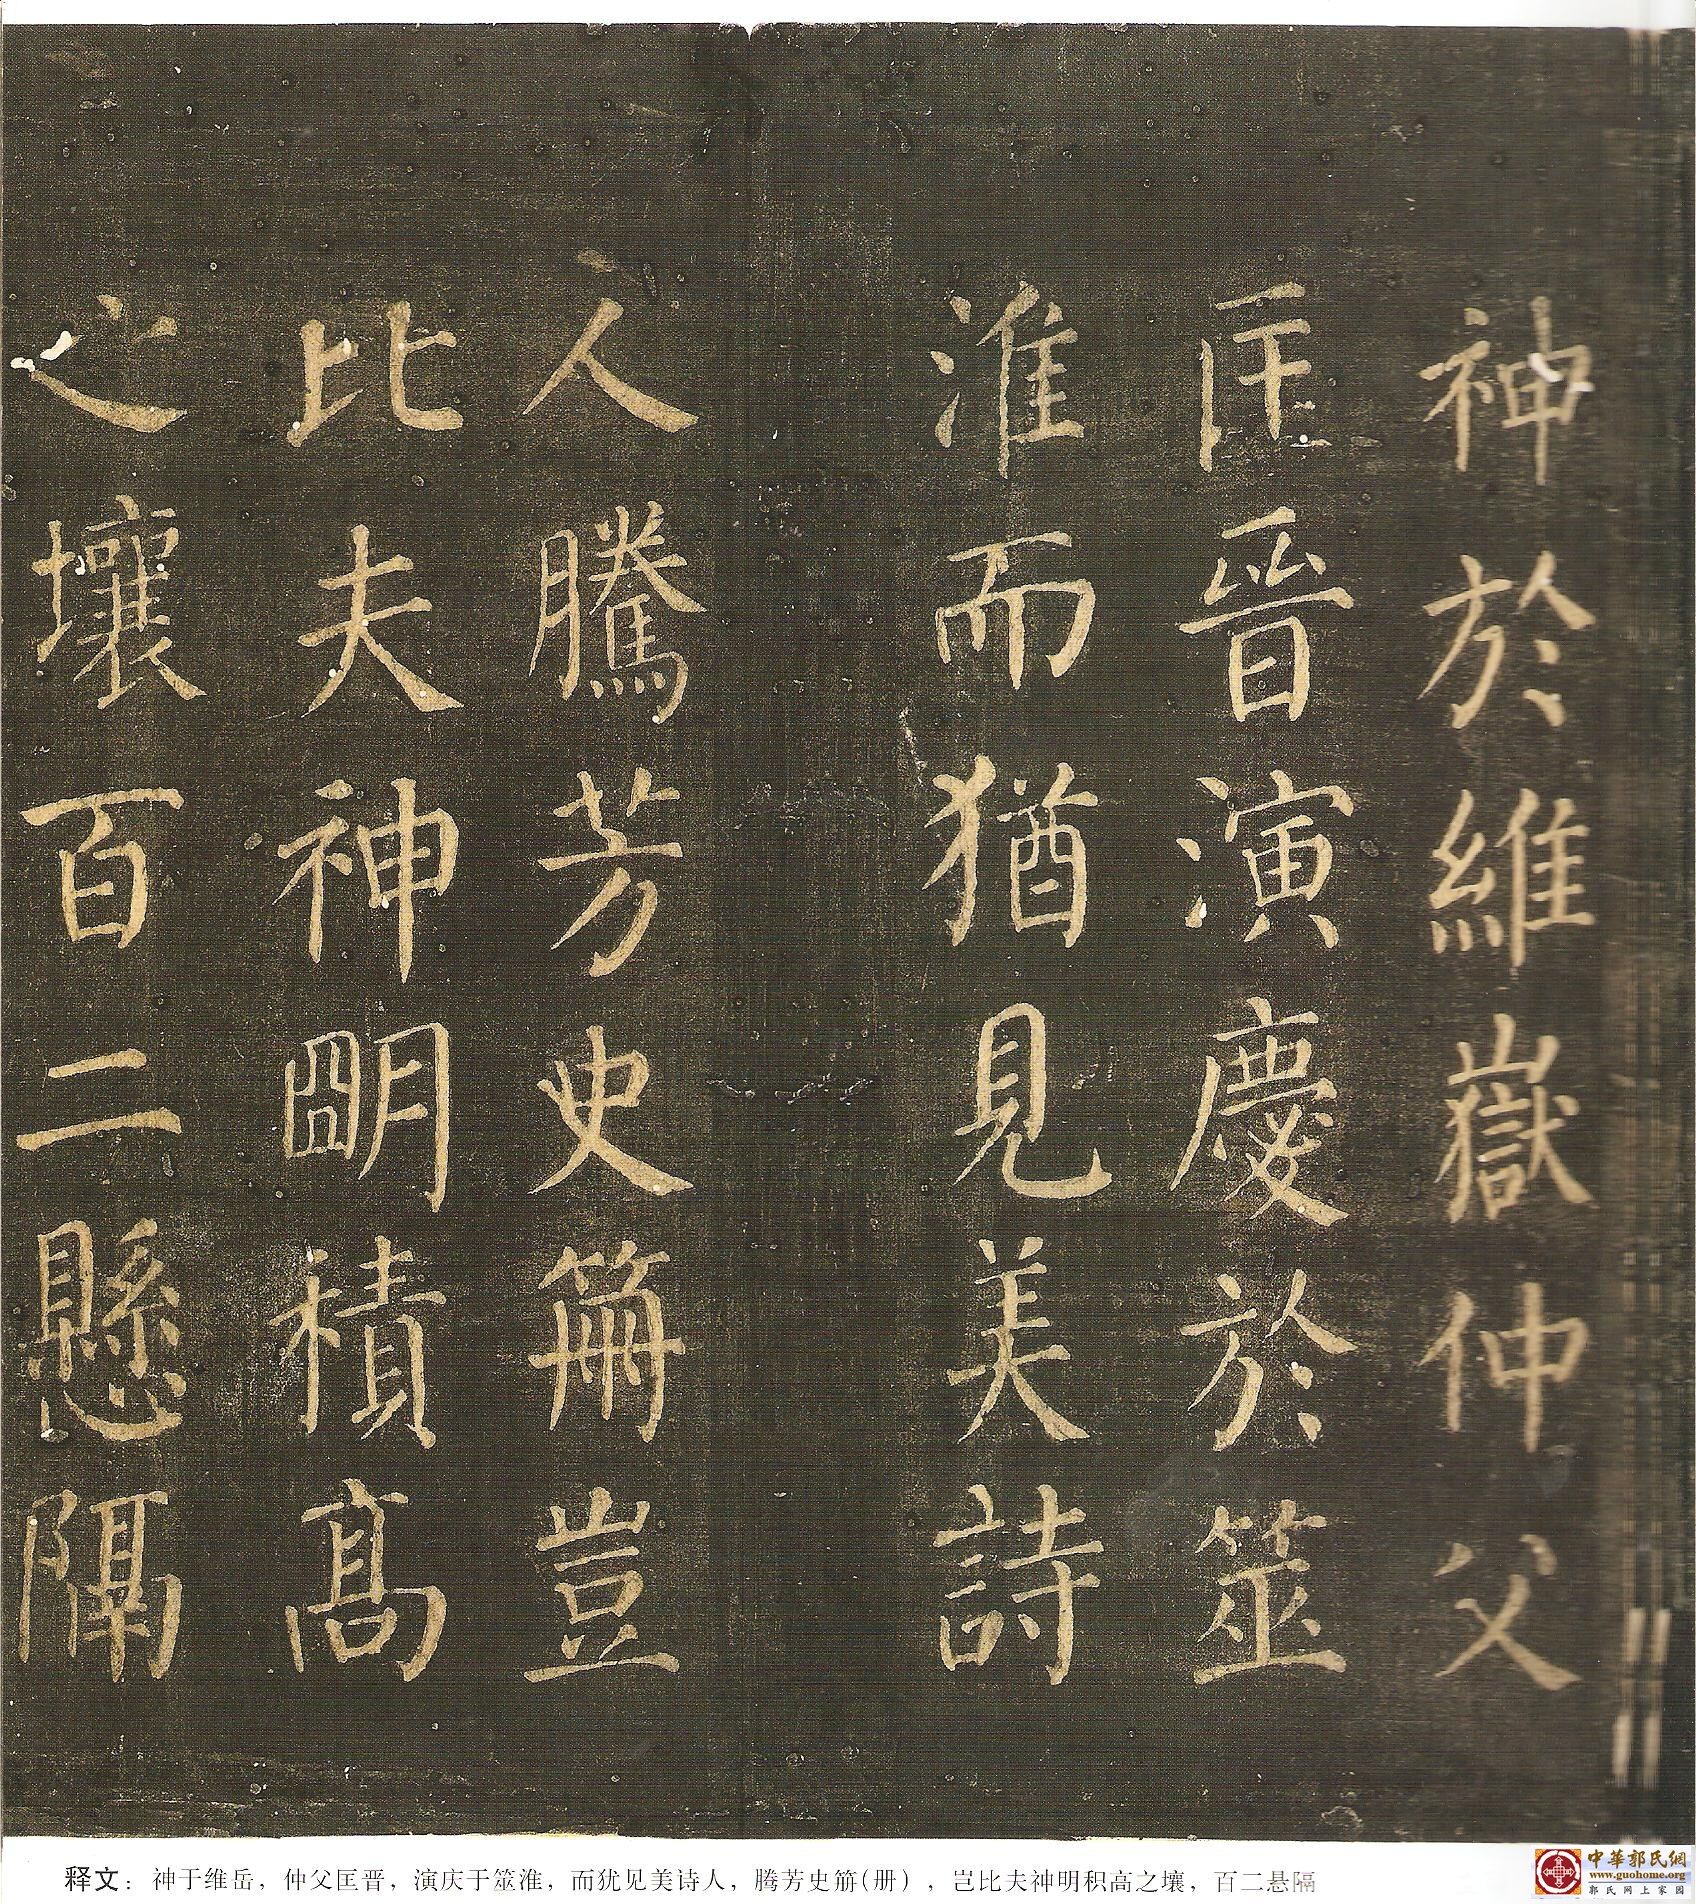 神於維嶽仲父
匡晉演慶於筮
淮而猶見美詩
人騰芳史筞豈
比夫神明積高
之壤百二懸隔
释文：神于维岳，仲父匡晋，演庆于筮淮，而犹见美诗人，腾芳史筞(册)，岂比夫神明积高之壤，百二悬隔
中華郭氏網
www.guohome.org
郭氏网上家园